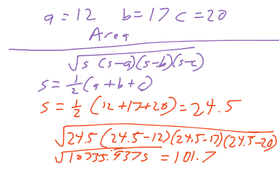 a = 12 b = 17 c = 20
Area
√s (s-a)(s-b)(s-c)
s = 1/2 (a + b + c)
s = 1/2 (12 + 17 + 20) = 24.5
√24.5 (24.5 - 12)(24.5 - 17)(24.5 - 20)
√10335.9375 = 101.7